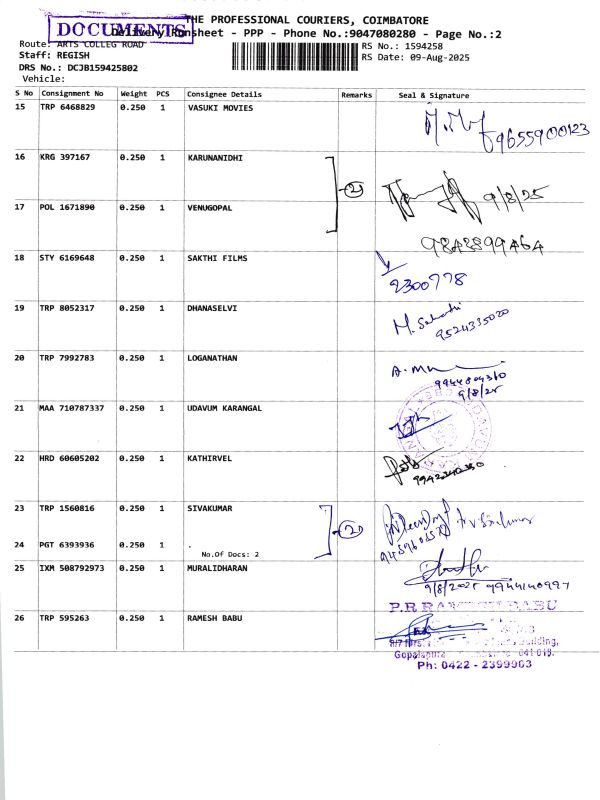 DOCUMENTS
THE PROFESSIONAL COURIERS, COIMBATORE
Delivery Runsheet - PPP - Phone No.:9047080280 - Page No.:2
Route: ARTS COLLEG ROAD RS No.: 1594258
Staff: REGISH RS Date: 09-Aug-2025
DRS No.: DCJB159425802
Vehicle:
S No Consignment No Weight PCS Consignee Details Remarks Seal & Signature
15 TRP 6468829 0.250 1 VASUKI MOVIES
9655900123
16 KRG 397167 0.250 1 KARUNANIDHI
2 9/8/25
17 POL 1671890 0.250 1 VENUGOPAL
9842899464
18 STY 6169648 0.250 1 SAKTHI FILMS
2300778
19 TRP 8052317 0.250 1 DHANASELVI
9524335020
20 TRP 7992783 0.250 1 LOGANATHAN
9944804310
9/8/25
21 MAA 710787337 0.250 1 UDAVUM KARANGAL
22 HRD 60605202 0.250 1 KATHIRVEL
23 TRP 1560816 0.250 1 SIVAKUMAR
2
24 PGT 6393936 0.250 1 .
No.Of Docs: 2
25 IXM 508792973 0.250 1 MURALIDHARAN
9/8/2025 9944140997
26 TRP 595263 0.250 1 RAMESH BABU
Building,
Ph: 0422 - 2399903